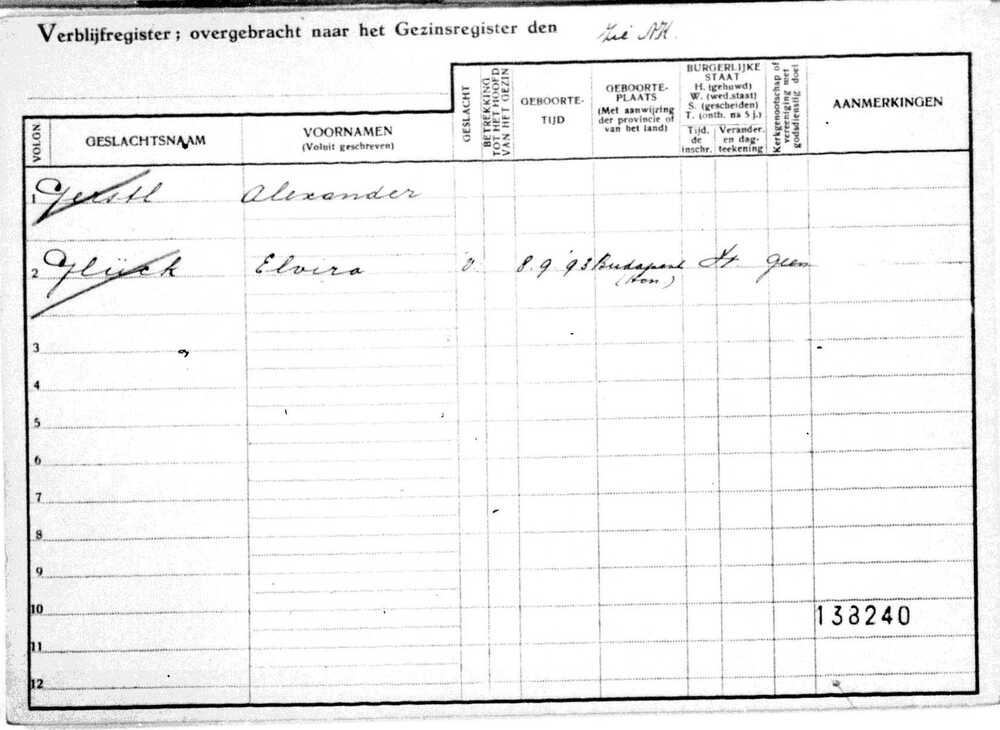 Verblijfregister; overgebracht naar het Gezinsregister den Zie NK.
VOLGN
GESLACHTSNAAM
VOORNAMEN
(Voluit geschreven)
GESLACHT
BETREKKING
TOT HET HOOFD
VAN HET GEZIN
GEBOORTE-
TIJD
GEBOORTE-
PLAATS
(Met aanwijzing
der provincie of
van het land)
BURGERLIJKE
STAAT
H. (gehuwd)
W. (wed.staat)
S. (gescheiden)
T. (onth. na 5 j.)
Tijd.
de
inschr.
Verander.
en dag-
teekening
Kerkgenootschap of
vereeniging met
godsdienstig doel
AANMERKINGEN
1 Gerstl Alexander
2 Glück Elvira v. 8.9.'93 Budapest H geen
(Hon)
3
4
5
6
7
8
9
10 138240
11
12